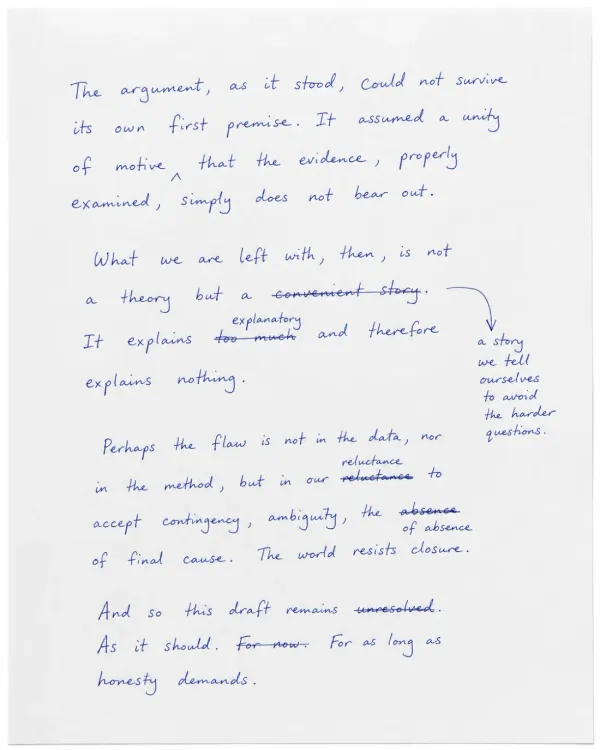 The argument, as it stood, could not survive
its own first premise. It assumed a unity
of motive ^ that the evidence, properly
examined, simply does not bear out.
What we are left with, then, is not
a theory but a convenient story.
explanatory
It explains too much and therefore
explains nothing.
a story
we tell
ourselves
to avoid
the harder
questions.
Perhaps the flaw is not in the data, nor
reluctance
in the method, but in our reluctance to
accept contingency, ambiguity, the absence
of absence
of final cause. The world resists closure.
And so this draft remains unresolved.
As it should. For now. For as long as
honesty demands.